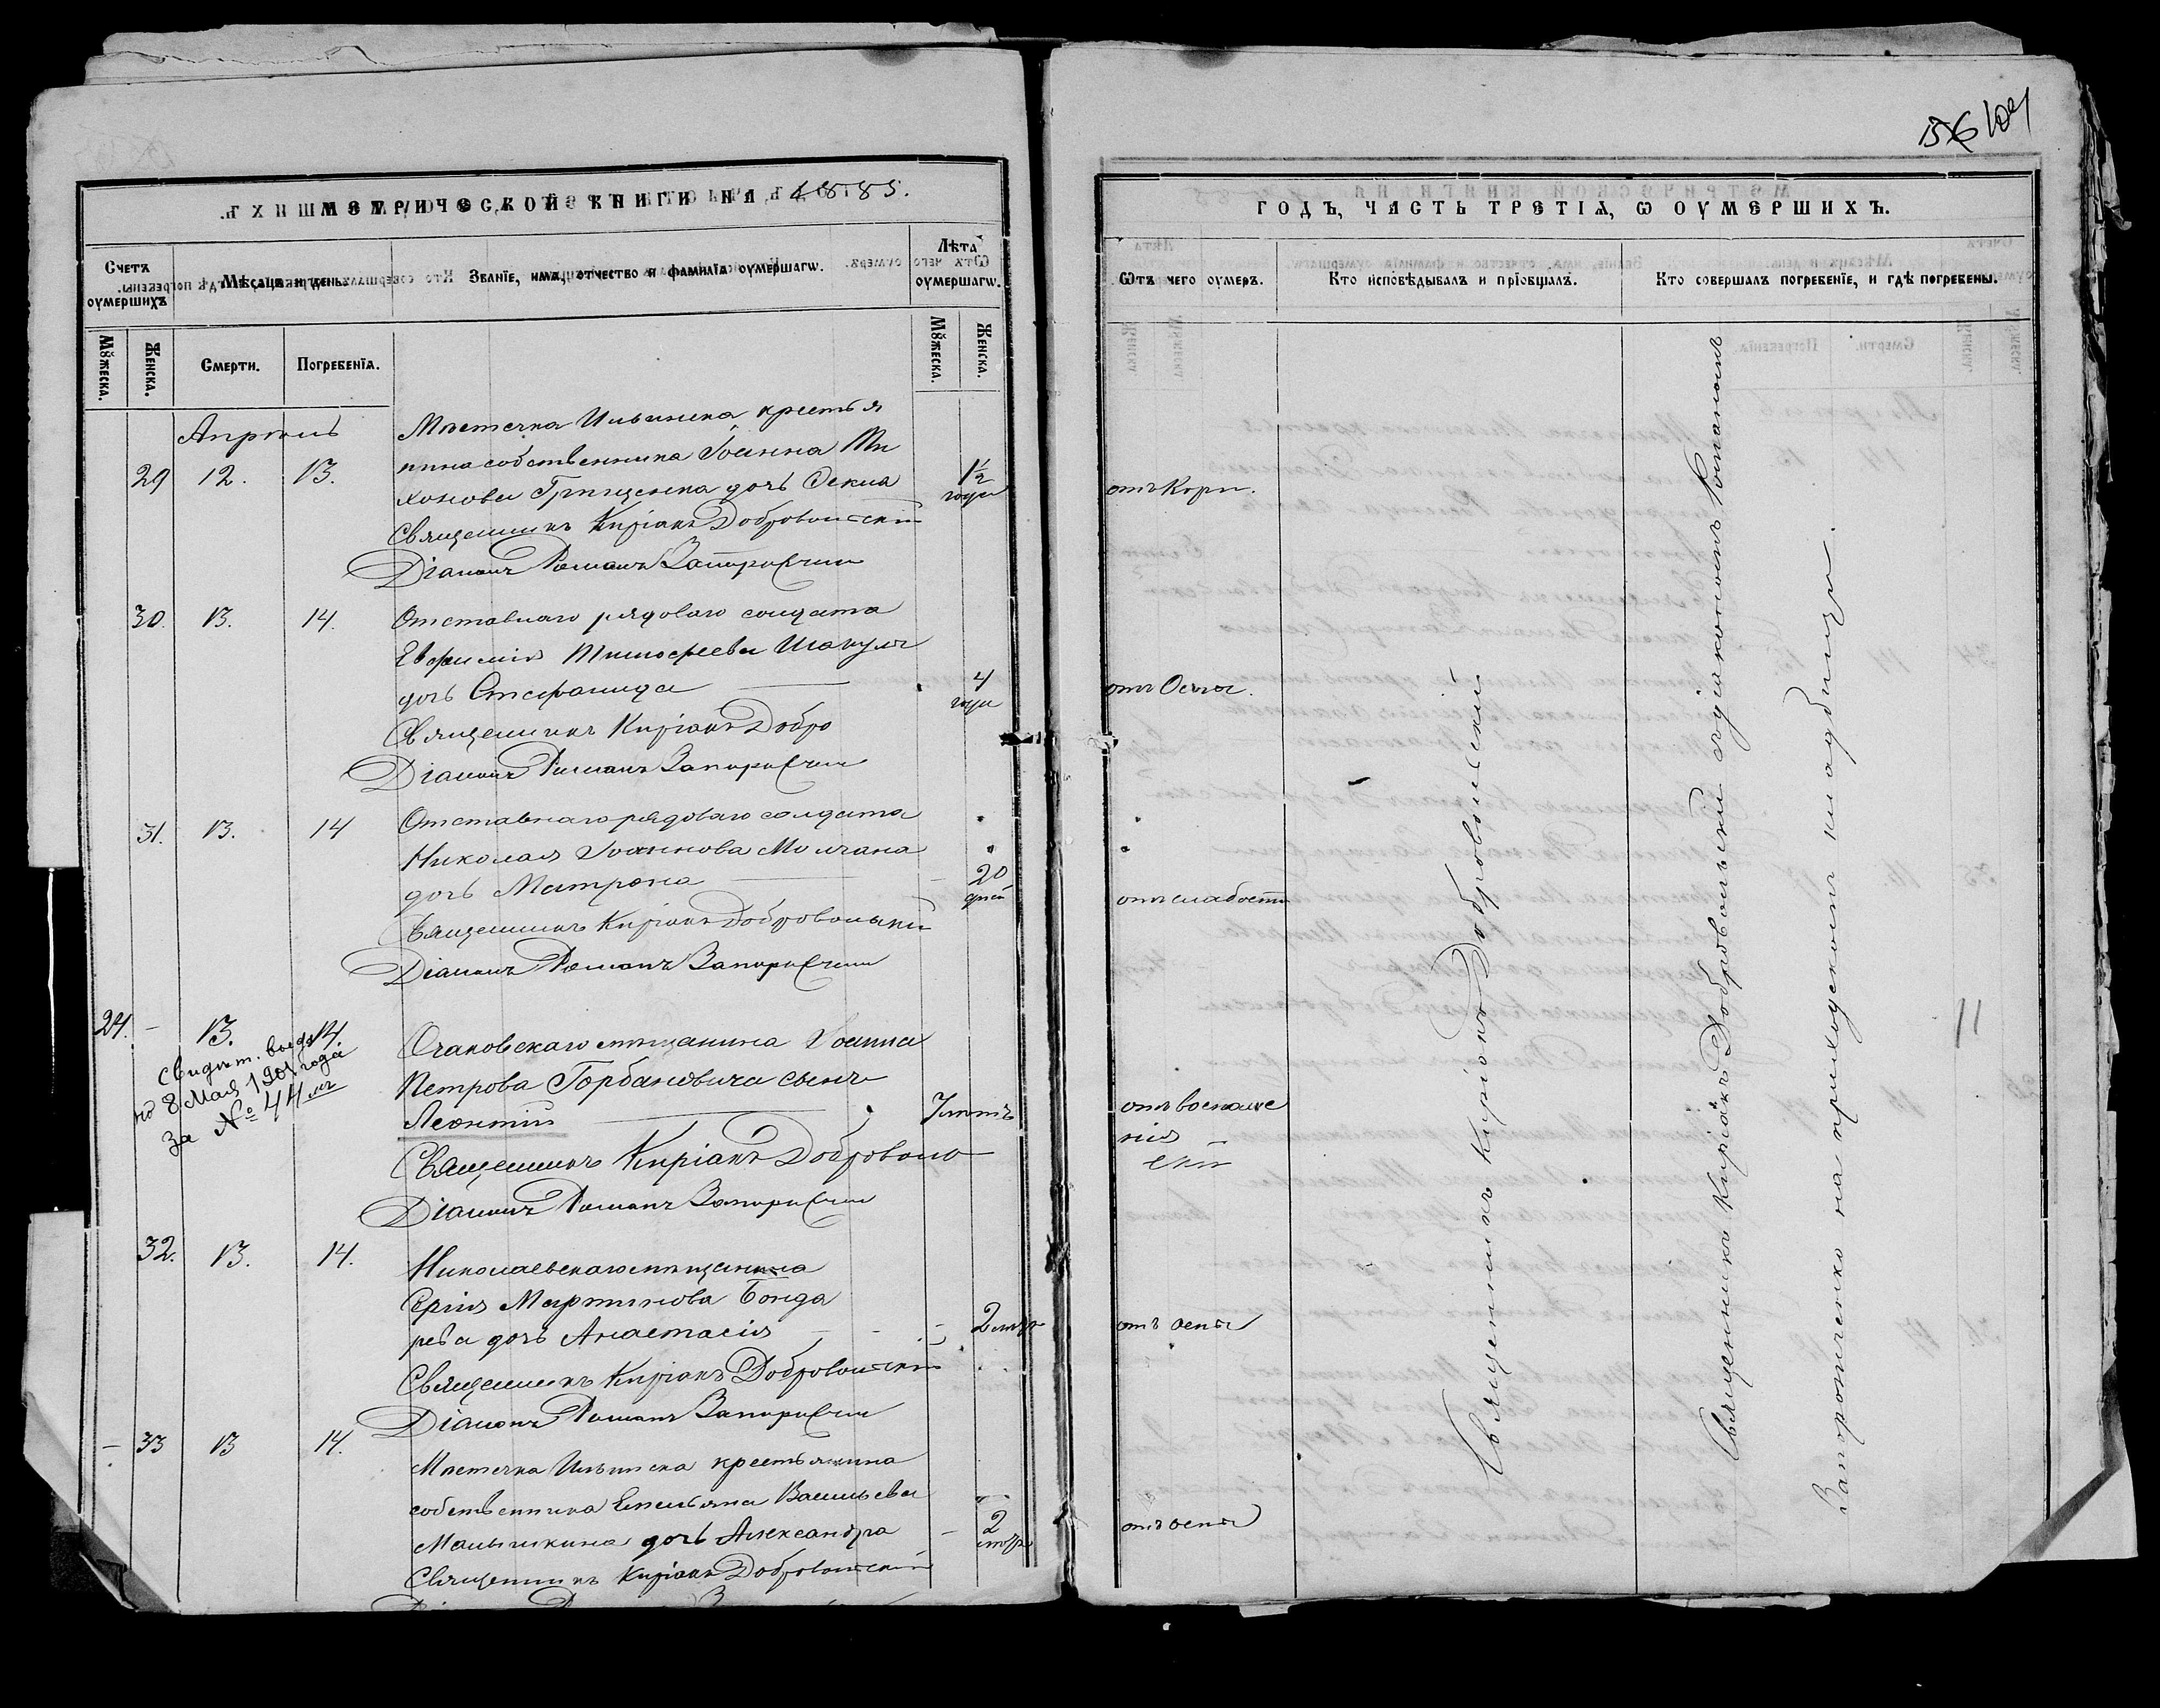 МЕТРИЧЕСКОЙ КНИГИ НА 1885.
Счетъ оумершихъ
Мѣсяцъ и день.
Званїе, имя, отчество и фамилїя оумершагѡ.
Лѣта оумершагѡ.
Мꙋжеска.
Женска.
Смерти.
Погребенїя.
Мꙋжеска.
Женска.
Апрѣль
Мѣстечка Ильинска крестья
29 12. 13.
нина собственника Іоанна Ти
хонова Грищенка дочь Фекла
1½ года
Священникъ Киріакъ Добровольскій
Діаконъ Романъ
30. 13. 14.
Отставнаго рядоваго солдата
Евфимія Тимофеева
дочь Стефанида
4 года
Священникъ Киріакъ Добро
Діаконъ Романъ
31. 13. 14
Отставнаго рядоваго солдата
Николая Іоаннова Молчана
дочь Матрона
20 дней
Священникъ Киріакъ Добровольскій
Діаконъ Романъ
24. - 13. 14.
Очаковскаго мѣщанина Іоанна
Петрова Горбановича сынъ
Леонтій
7 лѣтъ
Свидѣт. выда
но 8 Мая 1901 года
за № 44 м
Священникъ Киріакъ Доброволь
Діаконъ Романъ
32. 13. 14.
Николаевскаго мѣщанина
Сергія Мартинова Бонда
рева дочь Анастасія
2 лѣтъ
Священникъ Киріакъ Добровольскій
Діаконъ Романъ
- 33 13 14.
Мѣстечка Ильинска крестьянина
собственника Емельяна Васильева
Малышкина дочь Александра
2
Священникъ Киріакъ Добровольскій
156 104
ГОДЪ, ЧАСТЬ ТРЕТІѦ, Ѡ ОУМЕРШИХЪ.
Ѿтъ чего оумеръ.
Кто исповѣдывалъ и прїобщалъ.
Кто совершалъ погребенїе, и гдѣ погребены.
отъ Кори.
отъ Оспы.
отъ слабости
отъ воспале
нія
скій
отъ оспы
отъ оспы
Священникъ Киріакъ Добровольскій
Священникъ Киріакъ Добровольскій съ діакономъ Романомъ
Запорожченко на приходскомъ кладбищѣ.
11